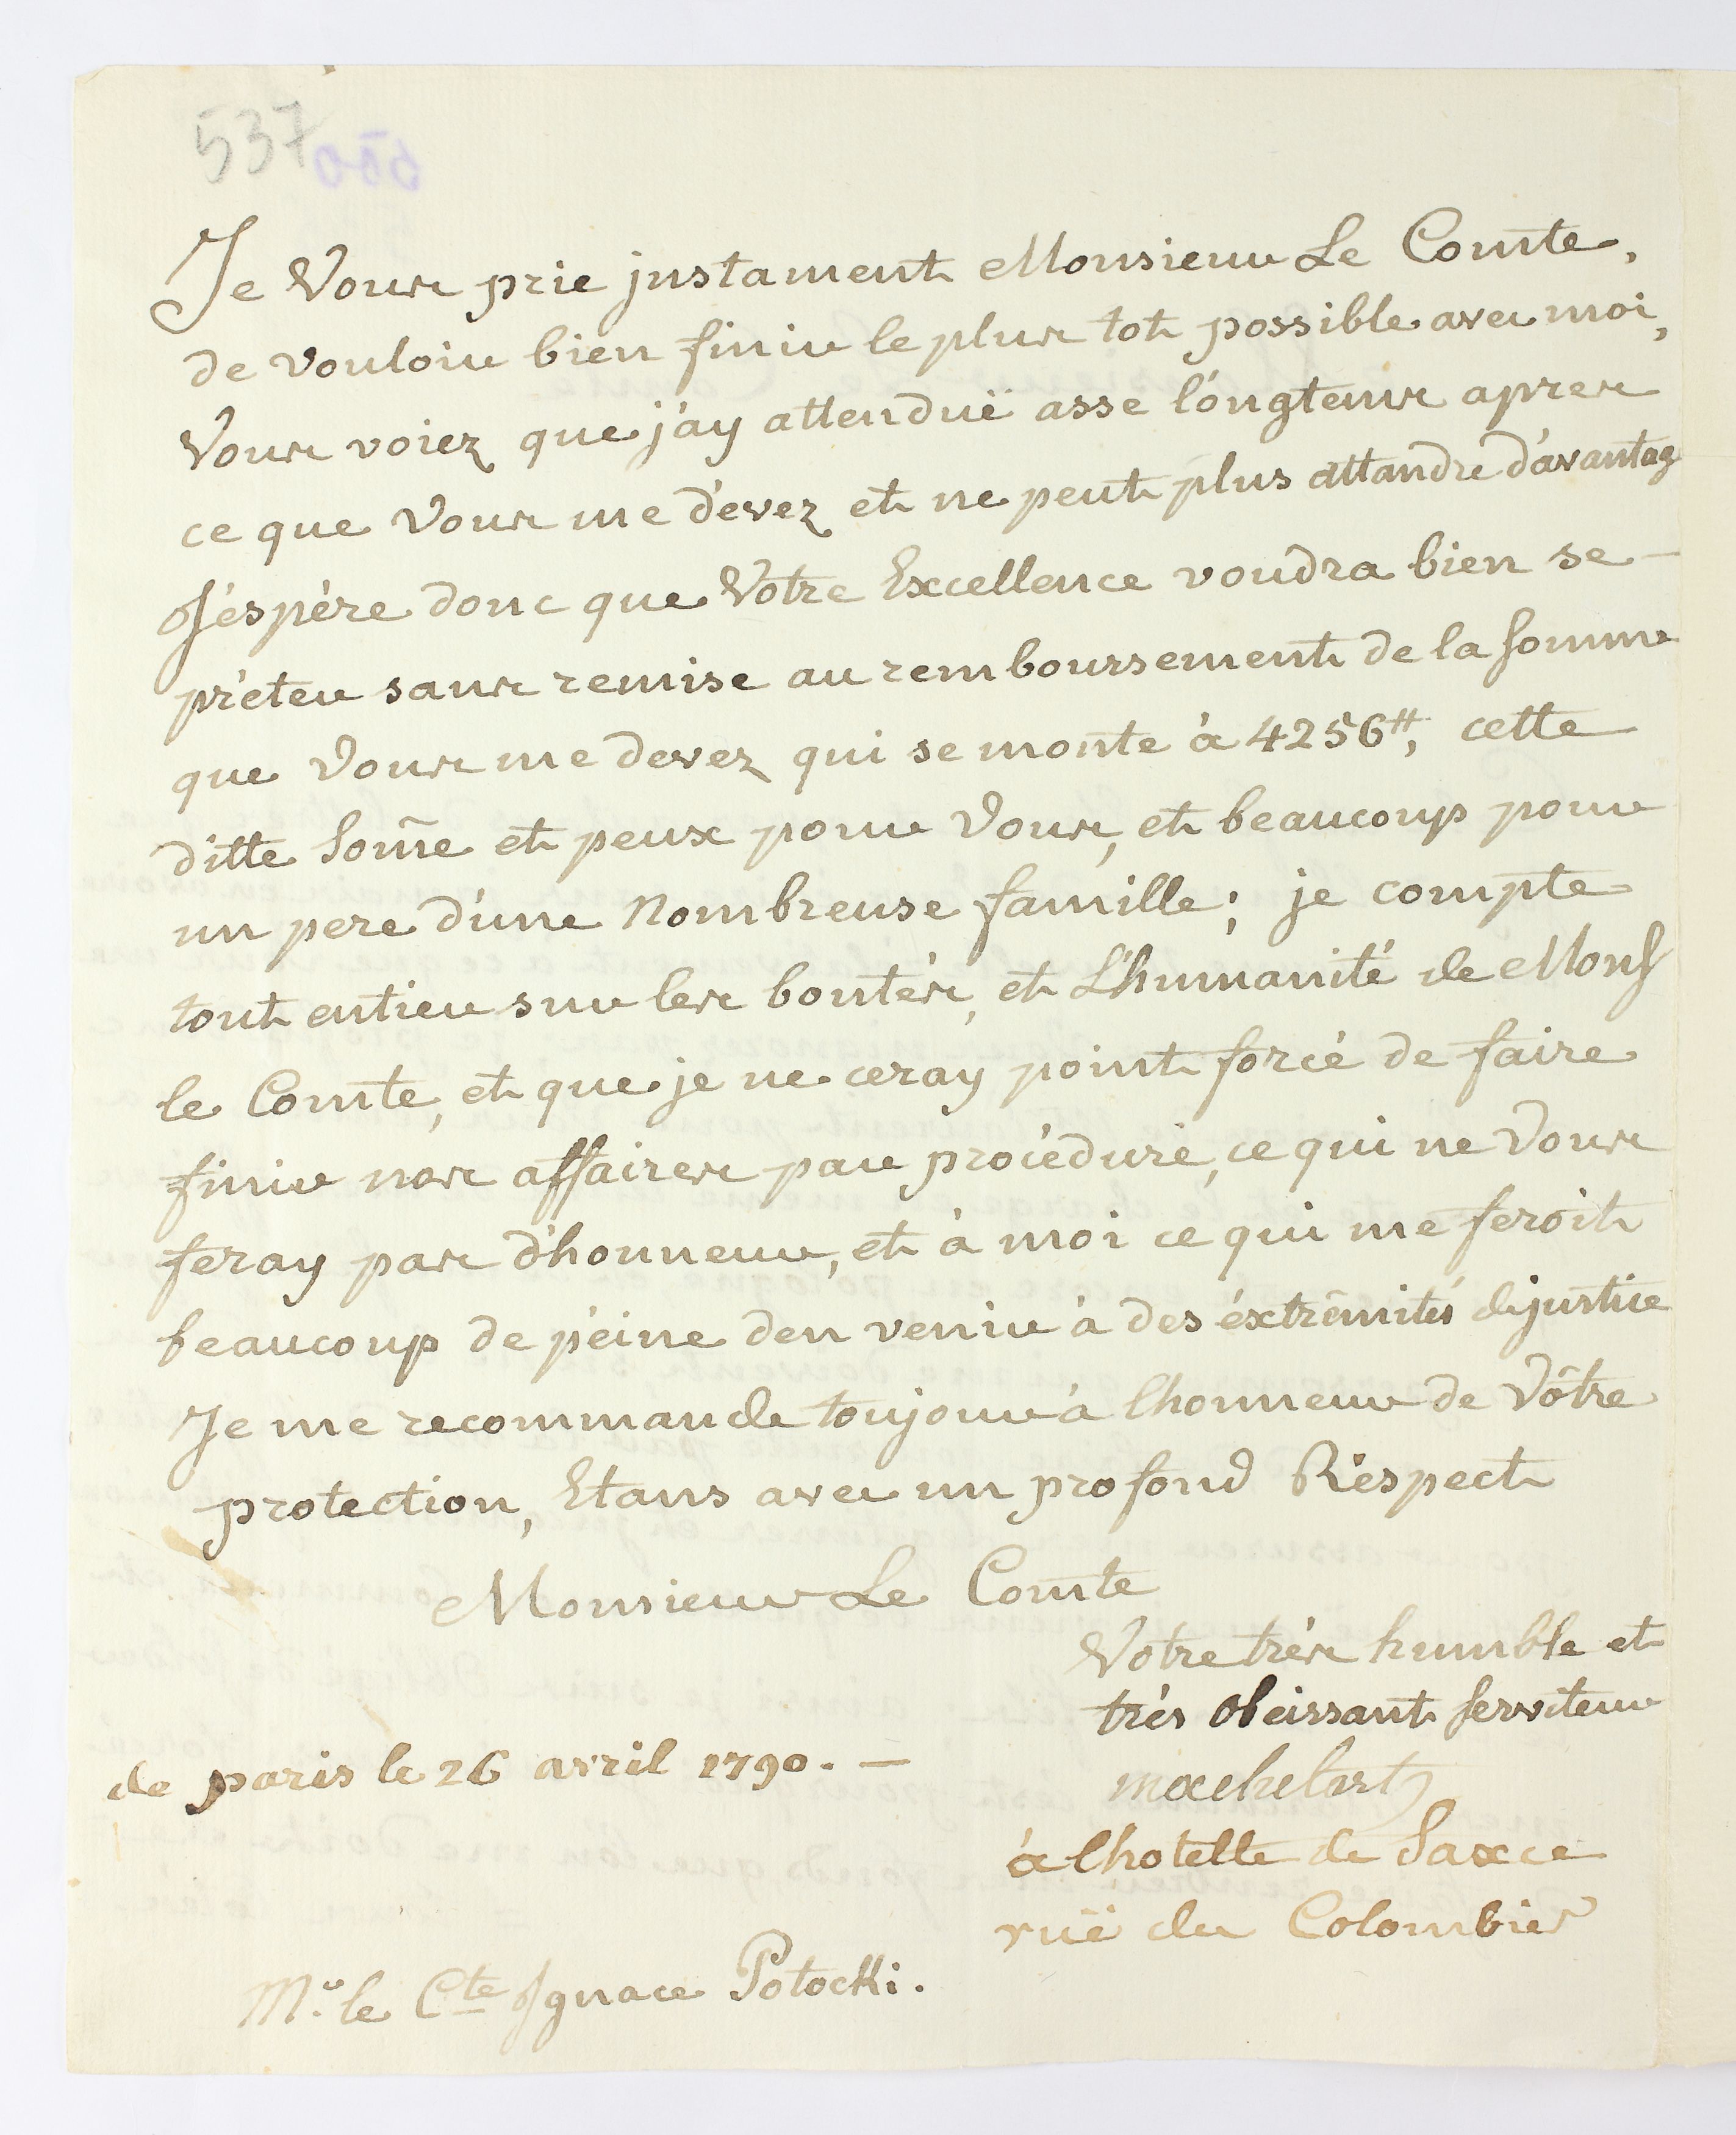 537
Je Vous prie justament Monsieur Le Comte,
de vouloir bien finir le plus tot possible avec moi,
Vous voiez que j'ay attenduë asse l'ongtems apres
ce que Vous me d'evez et ne peut plus attandre d'avantag
J'éspère donc que Votre Excellence voudra bien se-
prèter sans remise au remboursement de la Somme
que Vous me devez qui se monte à 4256#, cette
ditte Som̃e et peux pour Vous, et beaucoup pour
un pere d'une Nombreuse famille; je compte
tout entier sur les bontés, et L'humanité de Mons
le Comte, et que je ne ceray point forcé de faire
finir nos affaires par procédure, ce qui ne Vous
feray pas d'honneur, et à moi ce qui me feroit
beaucoup de péine den venir à des éxtrêmités de justice
Je me recommande toujour à lhonneur de Vôtre
protection, Etans avec un profond Réspect
Monsieur Le Comte
Votre très humble et
très obeissant Serviteur
de paris le 26 avril 1790. —
à lhotelle de Saxce
ruë du Colombier
Mr. le Cte Ignace Potocki.